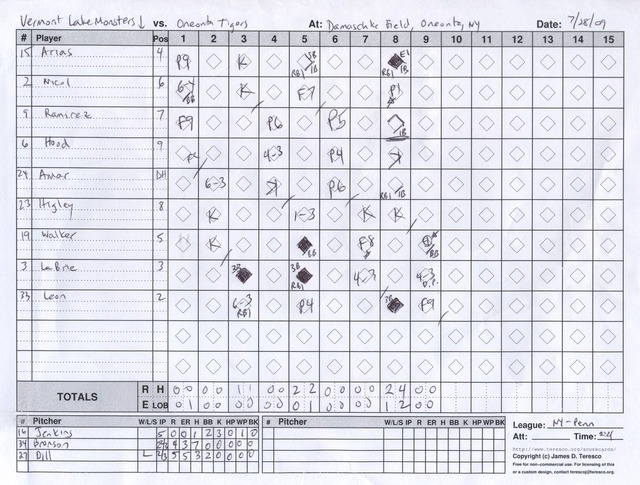 Vermont Lake Monsters vs. Oneonta Tigers At: Damaschke Field, Oneonta, NY Date: 7/28/09
# Player Pos 1 2 3 4 5 6 7 8 9 10 11 12 13 14 15
15 Arias 4 F9 K RBI SB 1B RBI E1 1B
2 Nicol 6 6-4 BB K F7 P1
9 Ramirez 7 F9 P6 P5 1B
6 Hood 9 4-3 P4 K
24 Amar DH 6-3 K P6 RBI 1B
23 Higley 8 K 1-3 K K
19 Walker 5 K BB F8 BB
3 LaBrie 3 3B 3B RBI 4-3 4-3 D.P.
33 Leon 2 6-3 RBI P4 F9
TOTALS R H 0 0 0 0 1 1 0 0 2 2 0 0 0 0 2 4 0 0
E LOB 0 1 0 0 0 0 0 0 0 1 0 0 0 0 1 2 0 0
# Pitcher W/L/S IP R ER H BB K HP WP BK
16 Jenkins 5 0 0 1 2 3 0 1 0
34 Bronson
27 Dill L 2/3 5 5 3 2 0 0 0 0
# Pitcher W/L/S IP R ER H BB K HP WP BK
League: NY-Penn
Att: Time:
http://www.teresco.org/scorecards/
Copyright (c) James D. Teresco
Free for non-commercial use. For licensing of this
or a custom design, contact teresco@teresco.org.